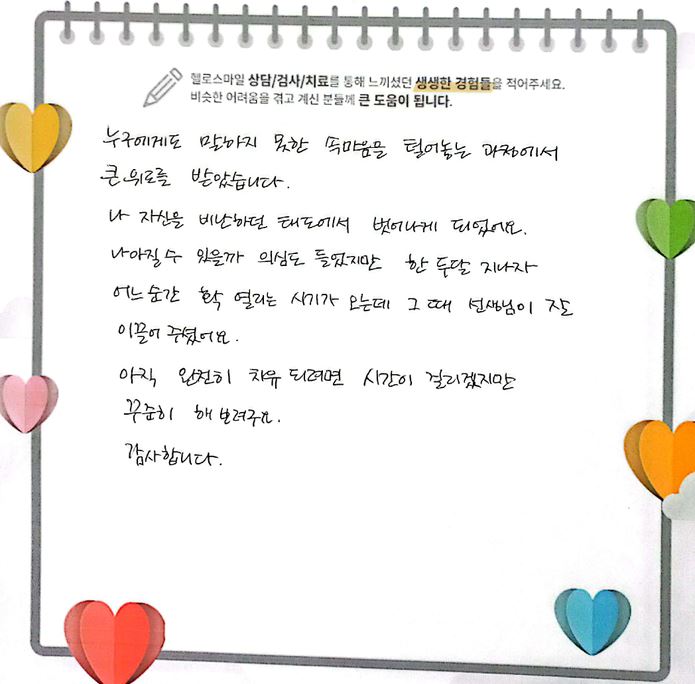 헬로스마일 상담/검사/치료를 통해 느끼셨던 생생한 경험들을 적어주세요.
비슷한 어려움을 겪고 계신 분들께 큰 도움이 됩니다.
누구에게도 말하지 못한 속마음을 털어놓는 과정에서
큰 위로를 받았습니다.
나 자신을 비난하던 태도에서 벗어나게 되었어요.
나아질 수 있을까 의심도 들었지만 한 두달 지나자
어느 순간 확 열리는 시기가 오는데 그 때 선생님이 잘
이끌어 주셨어요.
아직 완전히 치유 되려면 시간이 걸리겠지만
꾸준히 해 보려구요.
감사합니다.